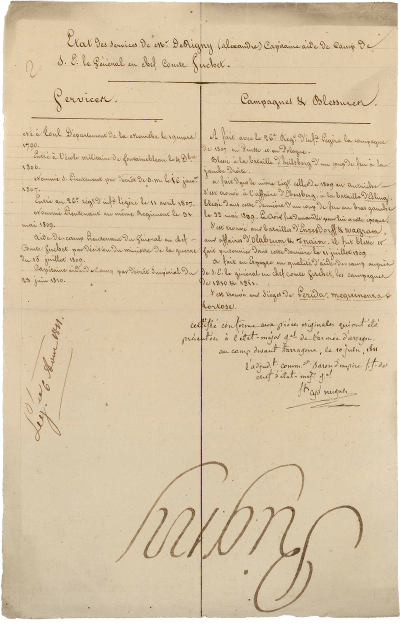 Etat des services de Mr. DeRigny (alexandre) Capitaine aide de Camp de
S. E. le Général en chef Comte Suchet.
Services.
Né à Toul Département de la Meurthe le 19 mars
1790.
Entré à l'école militaire de fontainebleau le 4 Xbre
1806.
Nommé s. Lieutenant par Décret de S.M. le 16 janvr
1807.
Entré au 26e régt d'inf. légère le 11 avril 1807.
Nommé Lieutenant au même Régiment le 31
mai 1809.
Aide-de-camp Lieutenant du Général en chef
Comte Suchet par décision du ministre de la guerre
du 18 juillet 1809.
Capitaine aide de Camp par décret Impérial du
29 juin 1810.
Campagnes & Blessures.
A fait avec le 26e Régt d'Inf. légère la campagne
de 1807 en Prusse et en Pologne.
Blessé à la bataille d'heilsberg d'un coup de feu à la
jambe droite.
a fait dans le même régt celle de 1809 en autriche
s'est trouvé à l'affaire d'Ebersberg, à la bataille d'Esling
blessé dans cette dernière d'un coup de feu au bras gauche
le 22 mai 1809.
s'est trouvé aux batailles d'Enzersdorf & Wagram,
aux affaires d'Olabrunn & Znaim, il fut blessé et
fait prisonnier dans cette dernière le 11 juillet 1809
a fait en Espagne en qualité d'aide de camp auprès
de S.E. le général en chef comte Suchet, les campagnes
de 1810 & 1811.
s'est trouvé aux Sièges de Lerida, Mequinenza &
tortose.
certifié conforme aux pièces originales qui ont été
présentées à l'état-major gal de l'armée d'arragon
au camp devant Tarragone, le 10 juin, 1811
l'adjudt. commt. Baron d'empire
chef d'état-major gal
1811.
Rigny